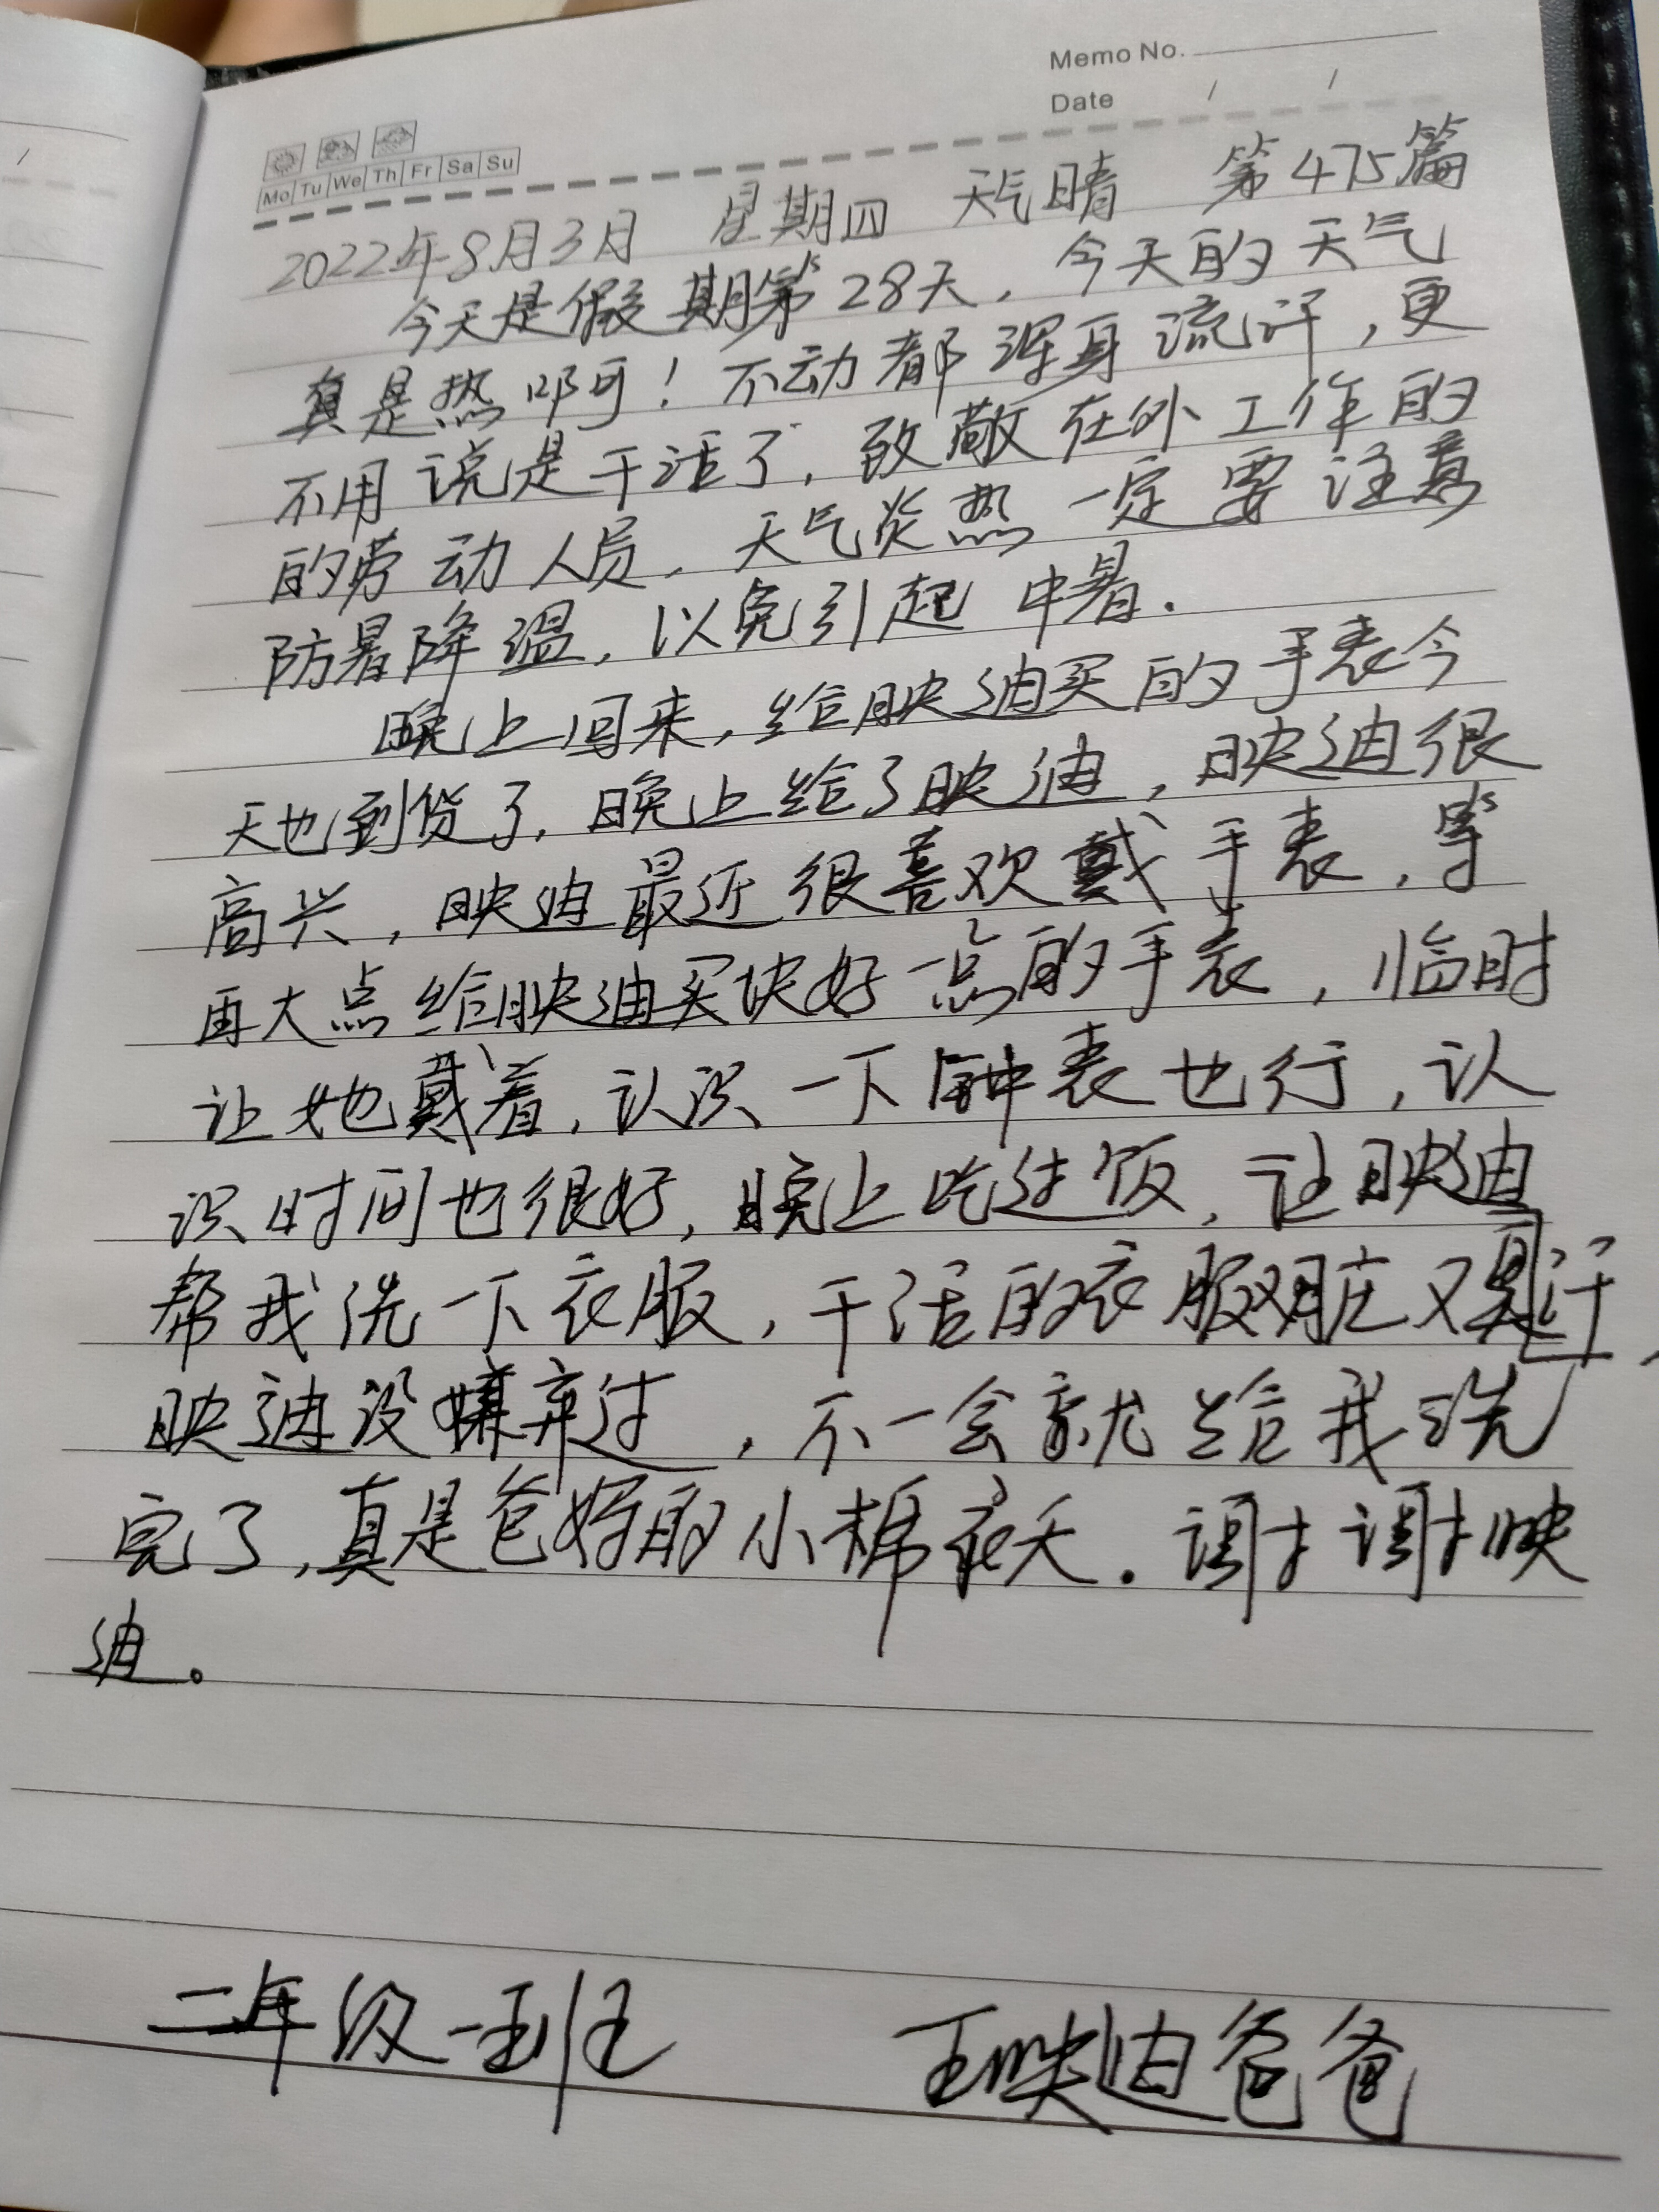 Memo No.
Date / /
Mo Tu We Th Fr Sa Su
2022年8月3日 星期四 天气晴 第475篇
今天是假期第28天，今天的天气
真是热啊！不动都浑身流汗，更
不用说是干活了，致敬在外工作的
的劳动人员，天气炎热一定要注意
防暑降温，以免引起中暑.
晚上回来，给映迪买的手表今
天也到货了，晚上给了映迪，映迪很
高兴，映迪最近很喜欢戴手表，等
再大点给映迪买块好一点的手表，临时
让她戴着，认识一下钟表也行，认
识时间也很好，晚上吃过饭，让映迪
帮我洗一下衣服，干活的衣服又脏又是汗，
映迪没嫌弃过，不一会就给我洗
完了，真是爸妈的小棉袄.谢谢映
迪。
二年级一班 王映迪爸爸